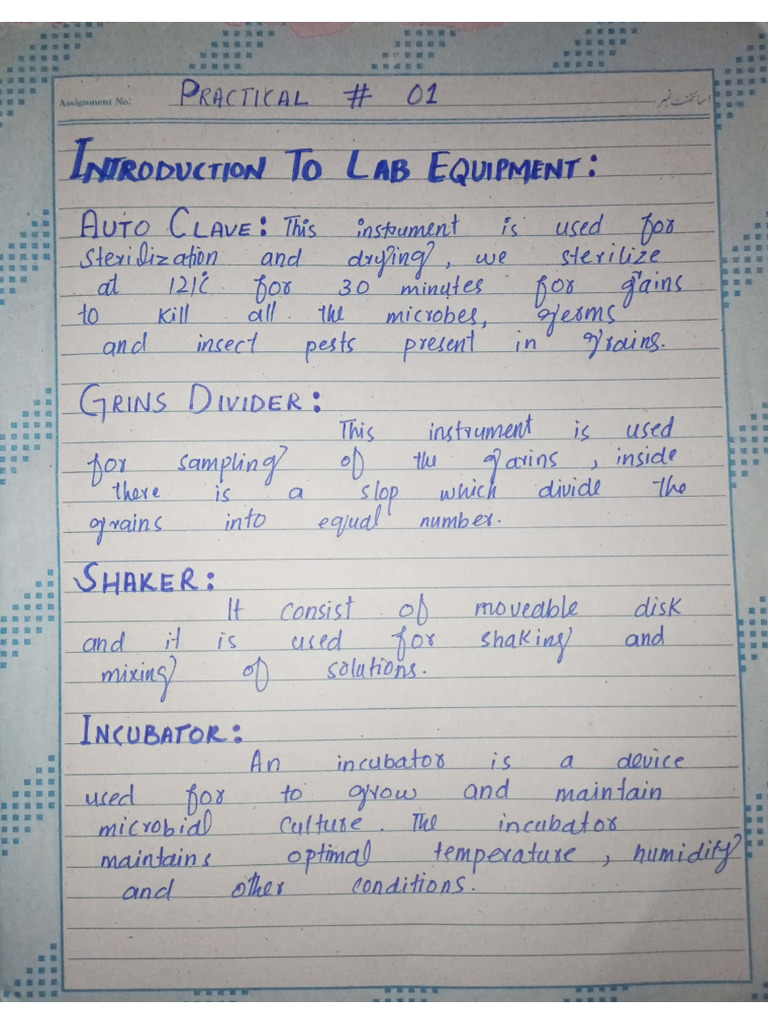 Assignment No: PRACTICAL # 01 اسائنمنٹ نمبر
INTRODUCTION TO LAB EQUIPMENT:
AUTO CLAVE: This instrument is used for
Sterilization and drying, we sterilize
at 121℃ for 30 minutes for gains
to kill all the microbes, germs
and insect pests present in grains.
GRINS DIVIDER:
This instrument is used
for sampling of the garins, inside
there is a slop which divide the
grains into equal number.
SHAKER:
It consist of moveable disk
and it is used for shaking and
mixing of solutions.
INCUBATOR:
An incubator is a device
used for to grow and maintain
microbial culture. The incubator
maintains optimal temperature, humidity
and other conditions.